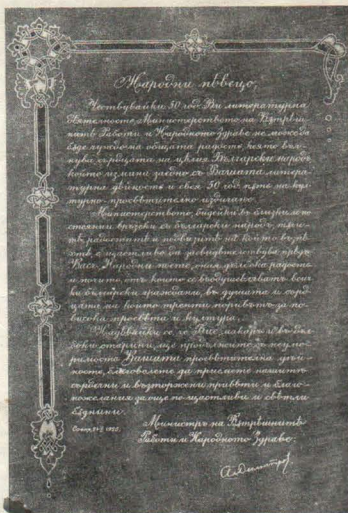 Народни пѣвецо,
Чествувайки 50 год. Ви литературна
дѣятелность, Министерството на Вѫтрѣш-
нитѣ Работи и Народното Здраве не може да
бѫде чуждо на общата радость, която въл-
нува сърдцата на цѣлия Български народъ,
който измина заедно съ Вашата литера-
турна дѣйность и своя 50 год. пѫть на кул-
турно-просвѣтително издигане.
Министерството, бидейки въ близки
връзки съ български народъ,
е щастливо да
Васъ Народни поете, ония дълбока радость
и почить, отъ които се въодушевляватъ всич-
ки български граждани, въ душата и сърд-
цата на които трепти поривътъ за по-
висока просвѣта и култура.
Надѣвайки се, че Васъ, макаръ и въ дъл-
боки старини, ще
Вашата просвѣтителна дѣй-
ность, благоволете да приемете нашитѣ
сърдечни и възторжени привѣти и благо-
пожелания за още по-щастливи и свѣтли
бѫднини.
1920.
Министръ на Вѫтрѣшнитѣ
Работи и Народното Здраве:
Ал. Димитров